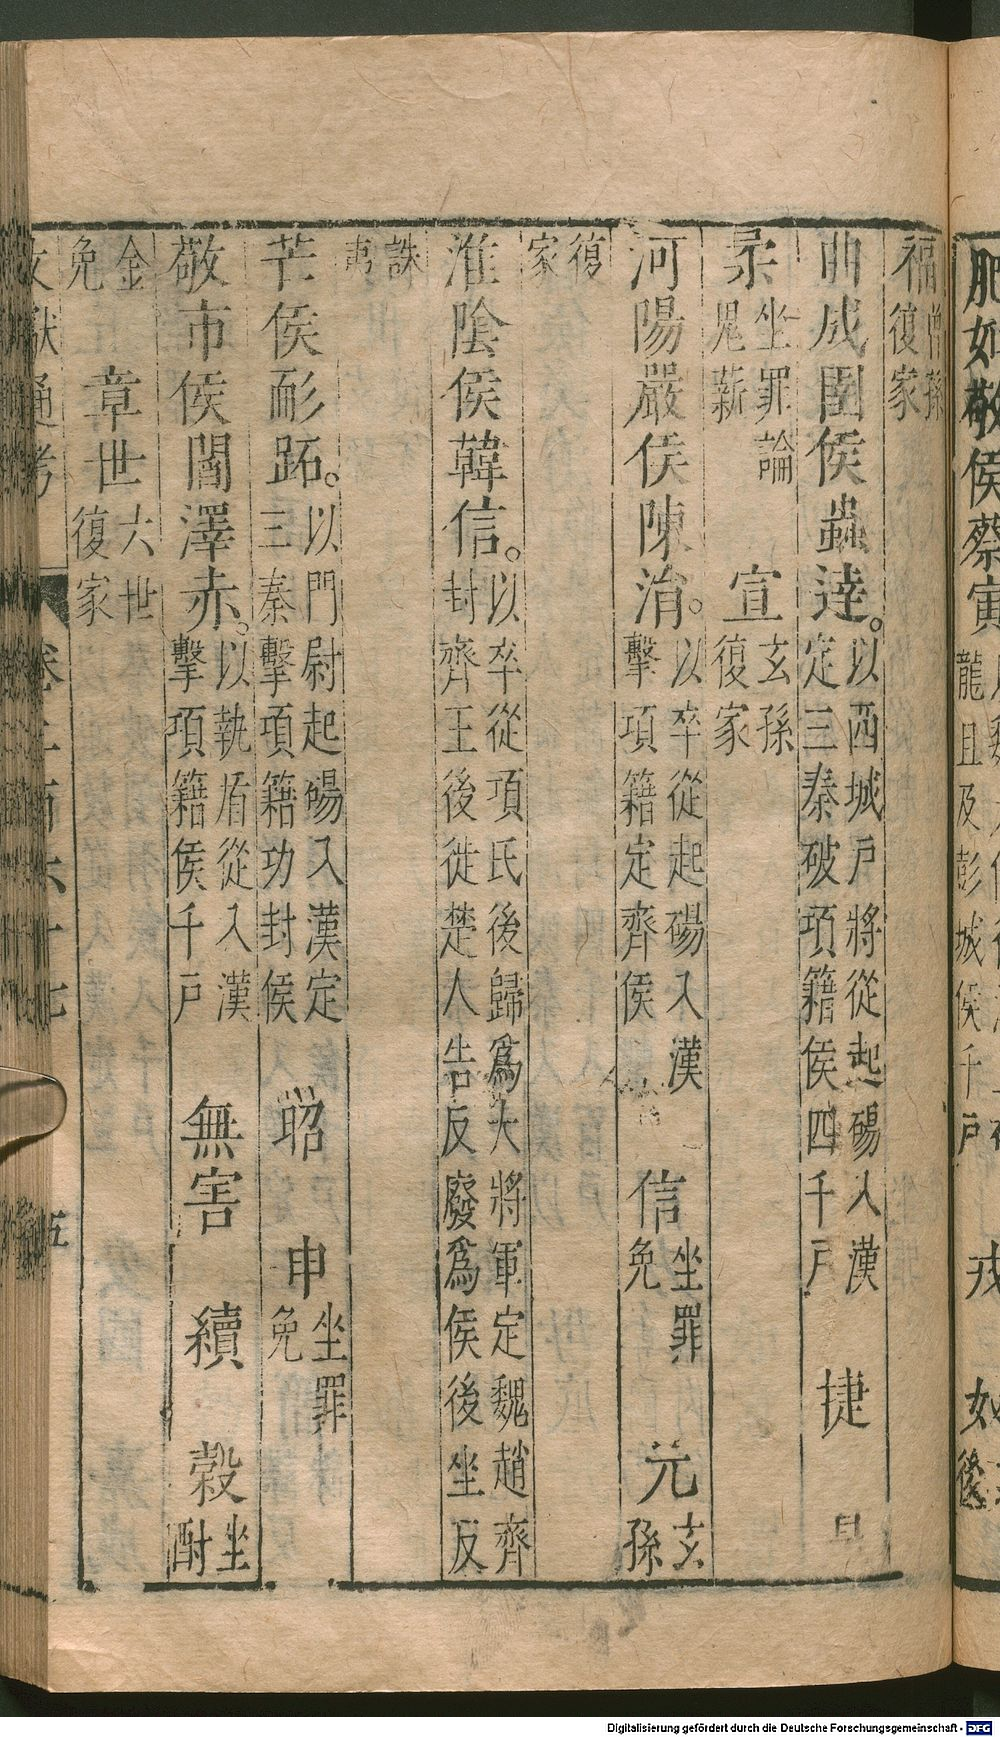 肥如敬侯蔡寅
龍且及彭城侯千戸
戎
福曾孫復家
曲成圉侯蟲逹。以西城戸將從起碭入漢定三秦破項籍侯四千戸 捷
柔坐罪論鬼薪 宣玄孫復家
河陽嚴侯陳涓。以卒從起碭入漢擊項籍定齊侯 信坐罪免 元玄孫
復家
淮陰侯韓信。以卒從項氏後歸爲大將軍定魏趙齊封齊王後徙楚人告反廢爲侯後坐反
誅
芒侯耏跖。以門尉起碭入漢定三秦擊項籍功封侯 昭 申坐罪免
敬市侯閻澤赤。以執盾從入漢擊項籍侯千戸 無害 續 穀坐酎
金免 章世六世復家
文獻通考 五
Digitalisierung gefördert durch die Deutsche Forschungsgemeinschaft - DFG